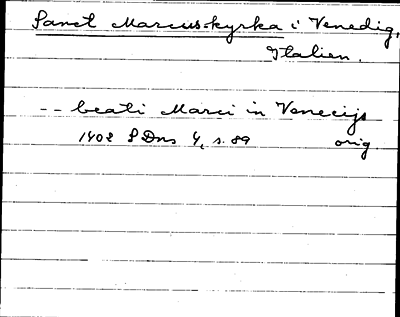 Sanct Marcus-kyrka i Venedig,
Italien.
-- beati Marci in Venecijs
1402 SDns 4, s. 89 orig.